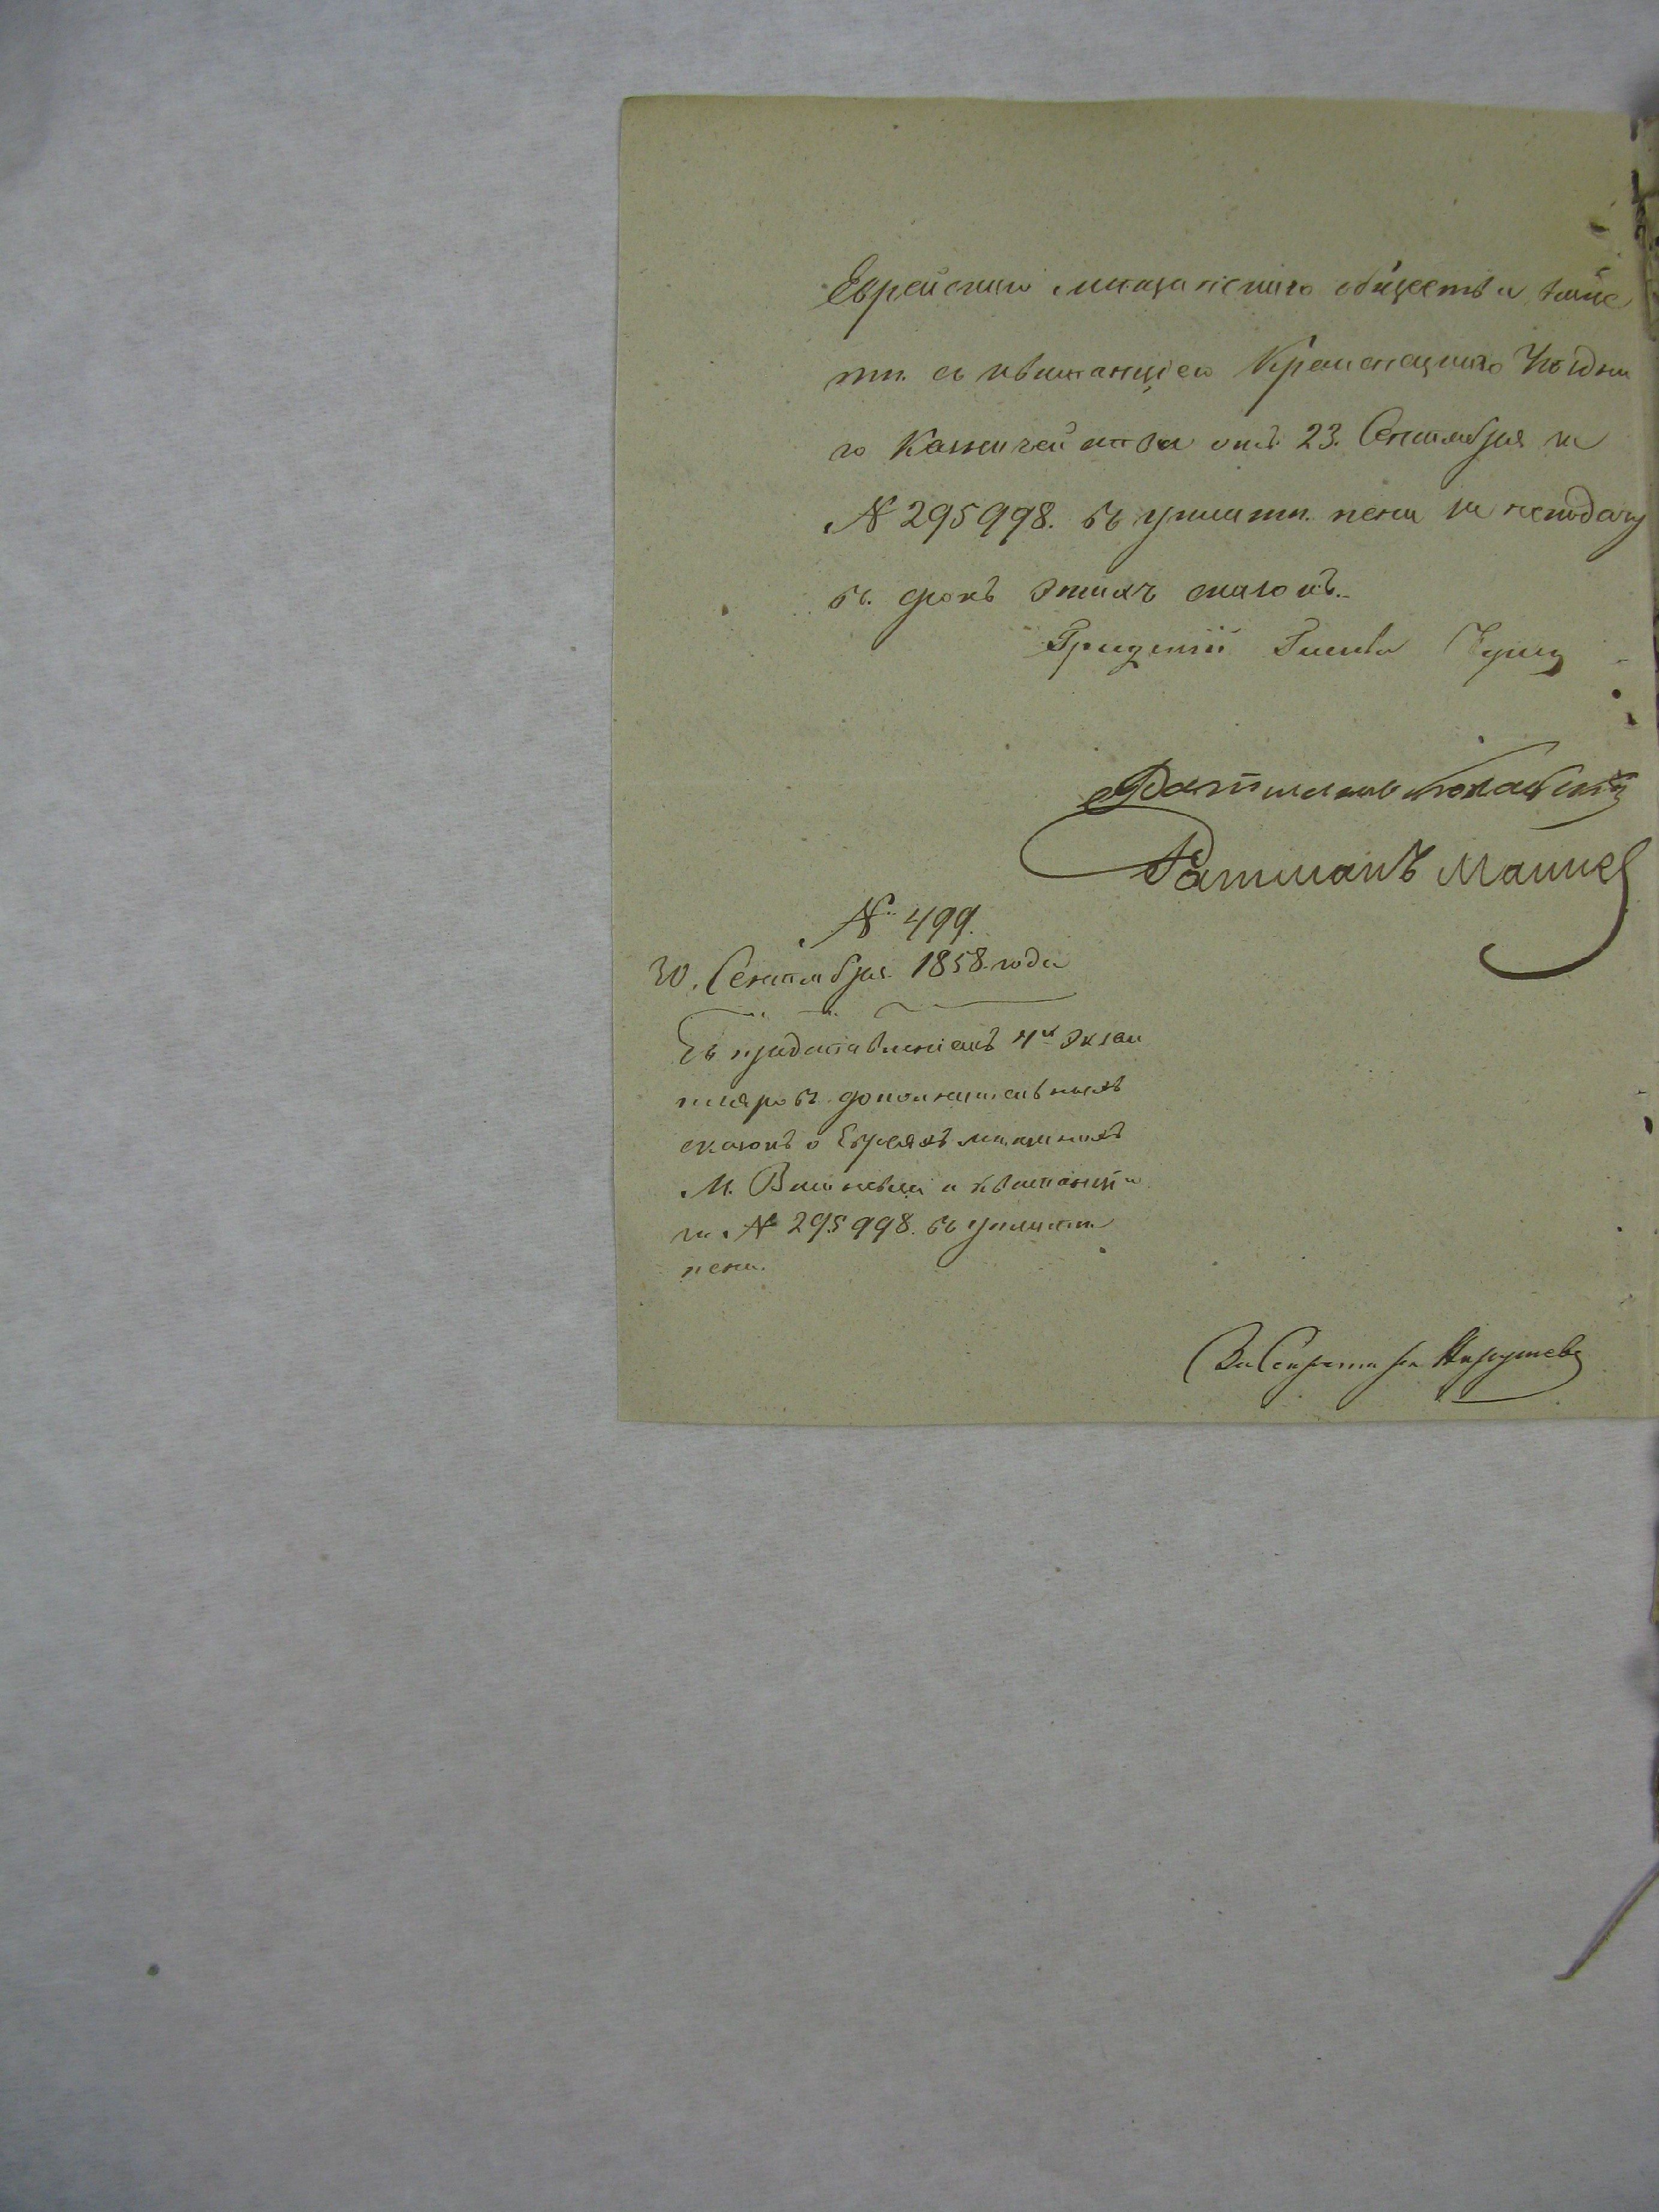 Еврейскаго мещанскаго общества вмѣс
тѣ съ квитанціею Кременецкаго Уѣздна
го Казначейства отъ 23. Сентября за
№ 295998. въ уплатѣ пени за неподачу
въ срокъ этихъ сказокъ.
Градскій Глава
Ратманъ
Ратманъ
№ 499.
30. Сентября 1858. года
Съ представленіемъ 4х экзем
пляровъ дополнительныхъ
сказокъ о Евреяхъ мещанахъ
М. Вишневца и квитанціи
за № 295998. въ уплатѣ
пени.
За Секретаря